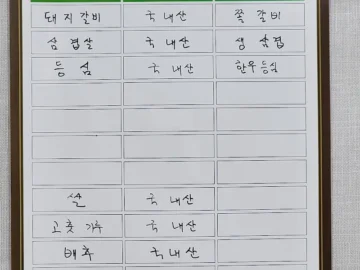 돼지갈비 국내산 쪽갈비
삼겹살 국내산 생삼겹
등심 국내산 한우등심
쌀 국내산
고춧가루 국내산
배추 국내산